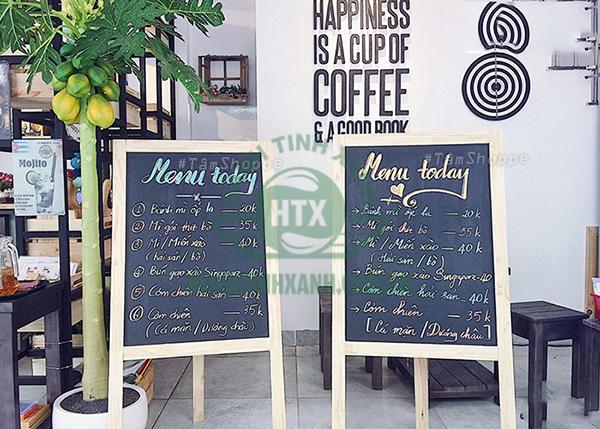 HAPPINESS
IS A CUP OF
COFFEE
& A GOOD BOOK
Mojito
#TâmShoppe
Menu today
① Bánh mì ốp la — 20k
② Mì gói thịt bò — 35k
③ Mì / Miến xào — 40k
(hải sản / bò)
④ Bún gạo xào Singapore - 40k
⑤ Cơm chiên hải sản — 40k
⑥ Cơm chiên — 35k
(Cá mặn / Dương châu)
#TâmShoppe
Menu today
→ Bánh mì ốp la — 20k
→ Mì gói thịt bò — 35k
→ Mì / Miến xào — 40k
(Hải sản / bò)
→ Bún gạo xào Singapore - 40
→ Cơm chiên hải sản - 40k
→ Cơm chiên — 35k
[Cá mặn / Dương châu]
HTX